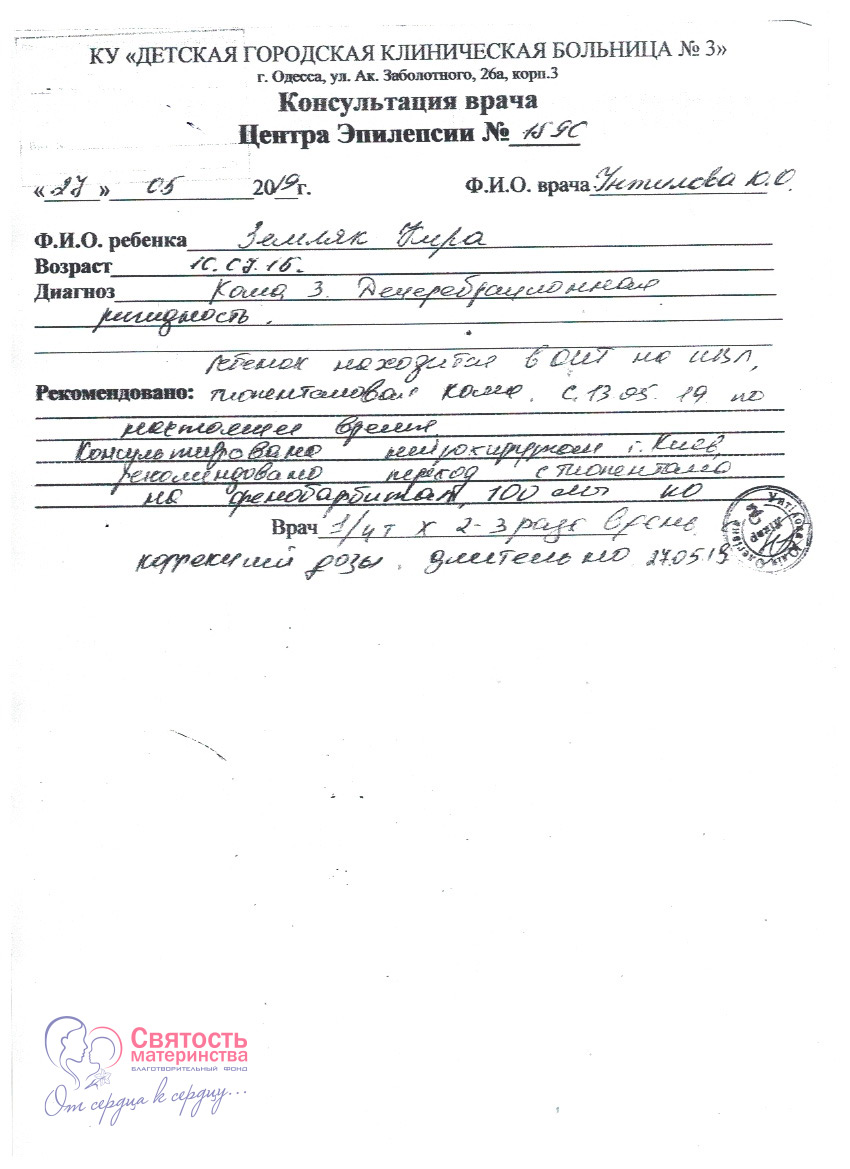 КУ «ДЕТСКАЯ ГОРОДСКАЯ КЛИНИЧЕСКАЯ БОЛЬНИЦА № 3»
г. Одесса, ул. Ак. Заболотного, 26а, корп.3
Консультация врача
Центра Эпилепсии №
«27» 05 2019г. Ф.И.О. врача Унтилова Ю.О.
Ф.И.О. ребенка Земляк Кира
Возраст
Диагноз Кома 3. Децеребрационная
ригидность.
Ребенок находится в ОИТ на ИВЛ,
Рекомендовано: тиопенталовая кома. с 13.05.19 по
настоящее время
Консультировано нейрохирургом г. Киев,
рекомендовано переход с тиопентала
на фенобарбитал, 100 по
Врач 1/4 т х 2-3 раза в день
коррекцией дозы. длительно 27.05.19
Святость
материнства
БЛАГОТВОРИТЕЛЬНЫЙ ФОНД
От сердца к сердцу...